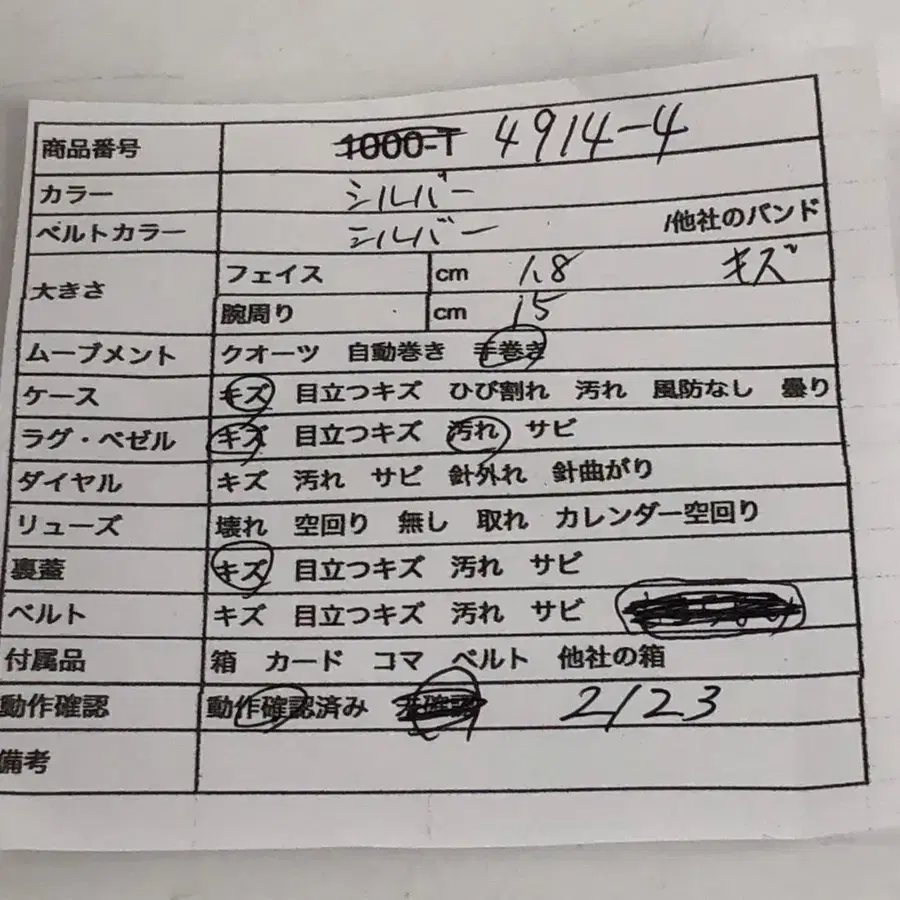 商品番号 1000-T 4914-4
カラー シルバー
ベルトカラー シルバー /他社のバンド
大きさ フェイス cm 1.8 キズ
腕周り cm 15
ムーブメント クオーツ 自動巻き 手巻き
ケース キズ 目立つキズ ひび割れ 汚れ 風防なし 曇り
ラグ・ベゼル キズ 目立つキズ 汚れ サビ
ダイヤル キズ 汚れ サビ 針外れ 針曲がり
リューズ 壊れ 空回り 無し 取れ カレンダー空回り
裏蓋 キズ 目立つキズ 汚れ サビ
ベルト キズ 目立つキズ 汚れ サビ
付属品 箱 カード コマ ベルト 他社の箱
動作確認 動作確認済み 未確認 2/23
備考